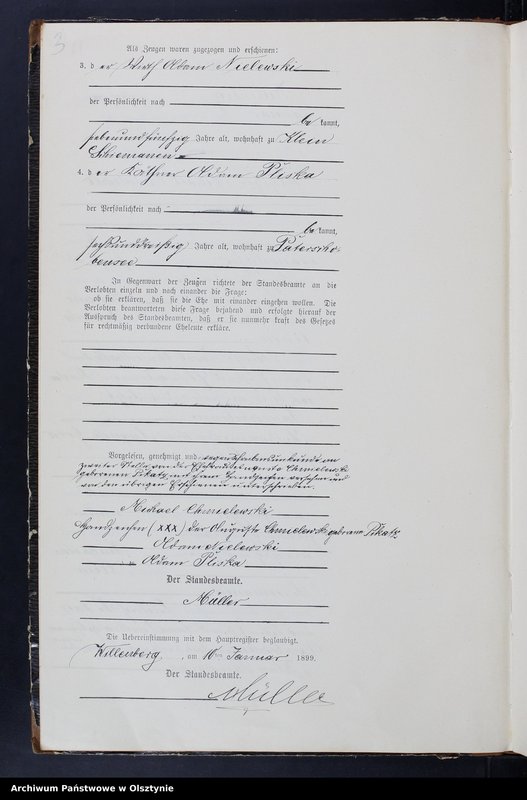 3
Als Zeugen waren zugezogen und erschienen:
3. d er Wirth Adam Nielewski
der Persönlichkeit nach
be kannt,
siebenundfünfzig Jahre alt, wohnhaft zu Klein
Schiemanen
4. d er Käthner Adam Pliska
der Persönlichkeit nach
be kannt,
sechsunddreißig Jahre alt, wohnhaft zu Paterscho-
bensee
In Gegenwart der Zeugen richtete der Standesbeamte an die
Verlobten einzeln und nach einander die Frage:
ob sie erklären, daß sie die Ehe mit einander eingehen wollen. Die
Verlobten beantworteten diese Frage bejahend und erfolgte hierauf der
Ausspruch des Standesbeamten, daß er sie nunmehr kraft des Gesetzes
für rechtmäßig verbundene Eheleute erkläre.
Vorgelesen, genehmigt und wegen Schreibensunkunde an
zweiter Stelle von der Ehefrau Auguste Chmielewski
geborenen Pikatz mit ihrem Handzeichen versehen und
von den übrigen Erschienenen unterschrieben.
Michael Chmielewski
Handzeichen (xxx) der Auguste Chmielewski geborene Pikatz
Adam Nielewski
Adam Pliska
Der Standesbeamte.
Müller
Die Uebereinstimmung mit dem Hauptregister beglaubigt.
Willenberg, am 10ten Januar 1899.
Der Standesbeamte.
Müller
Archiwum Państwowe w Olsztynie